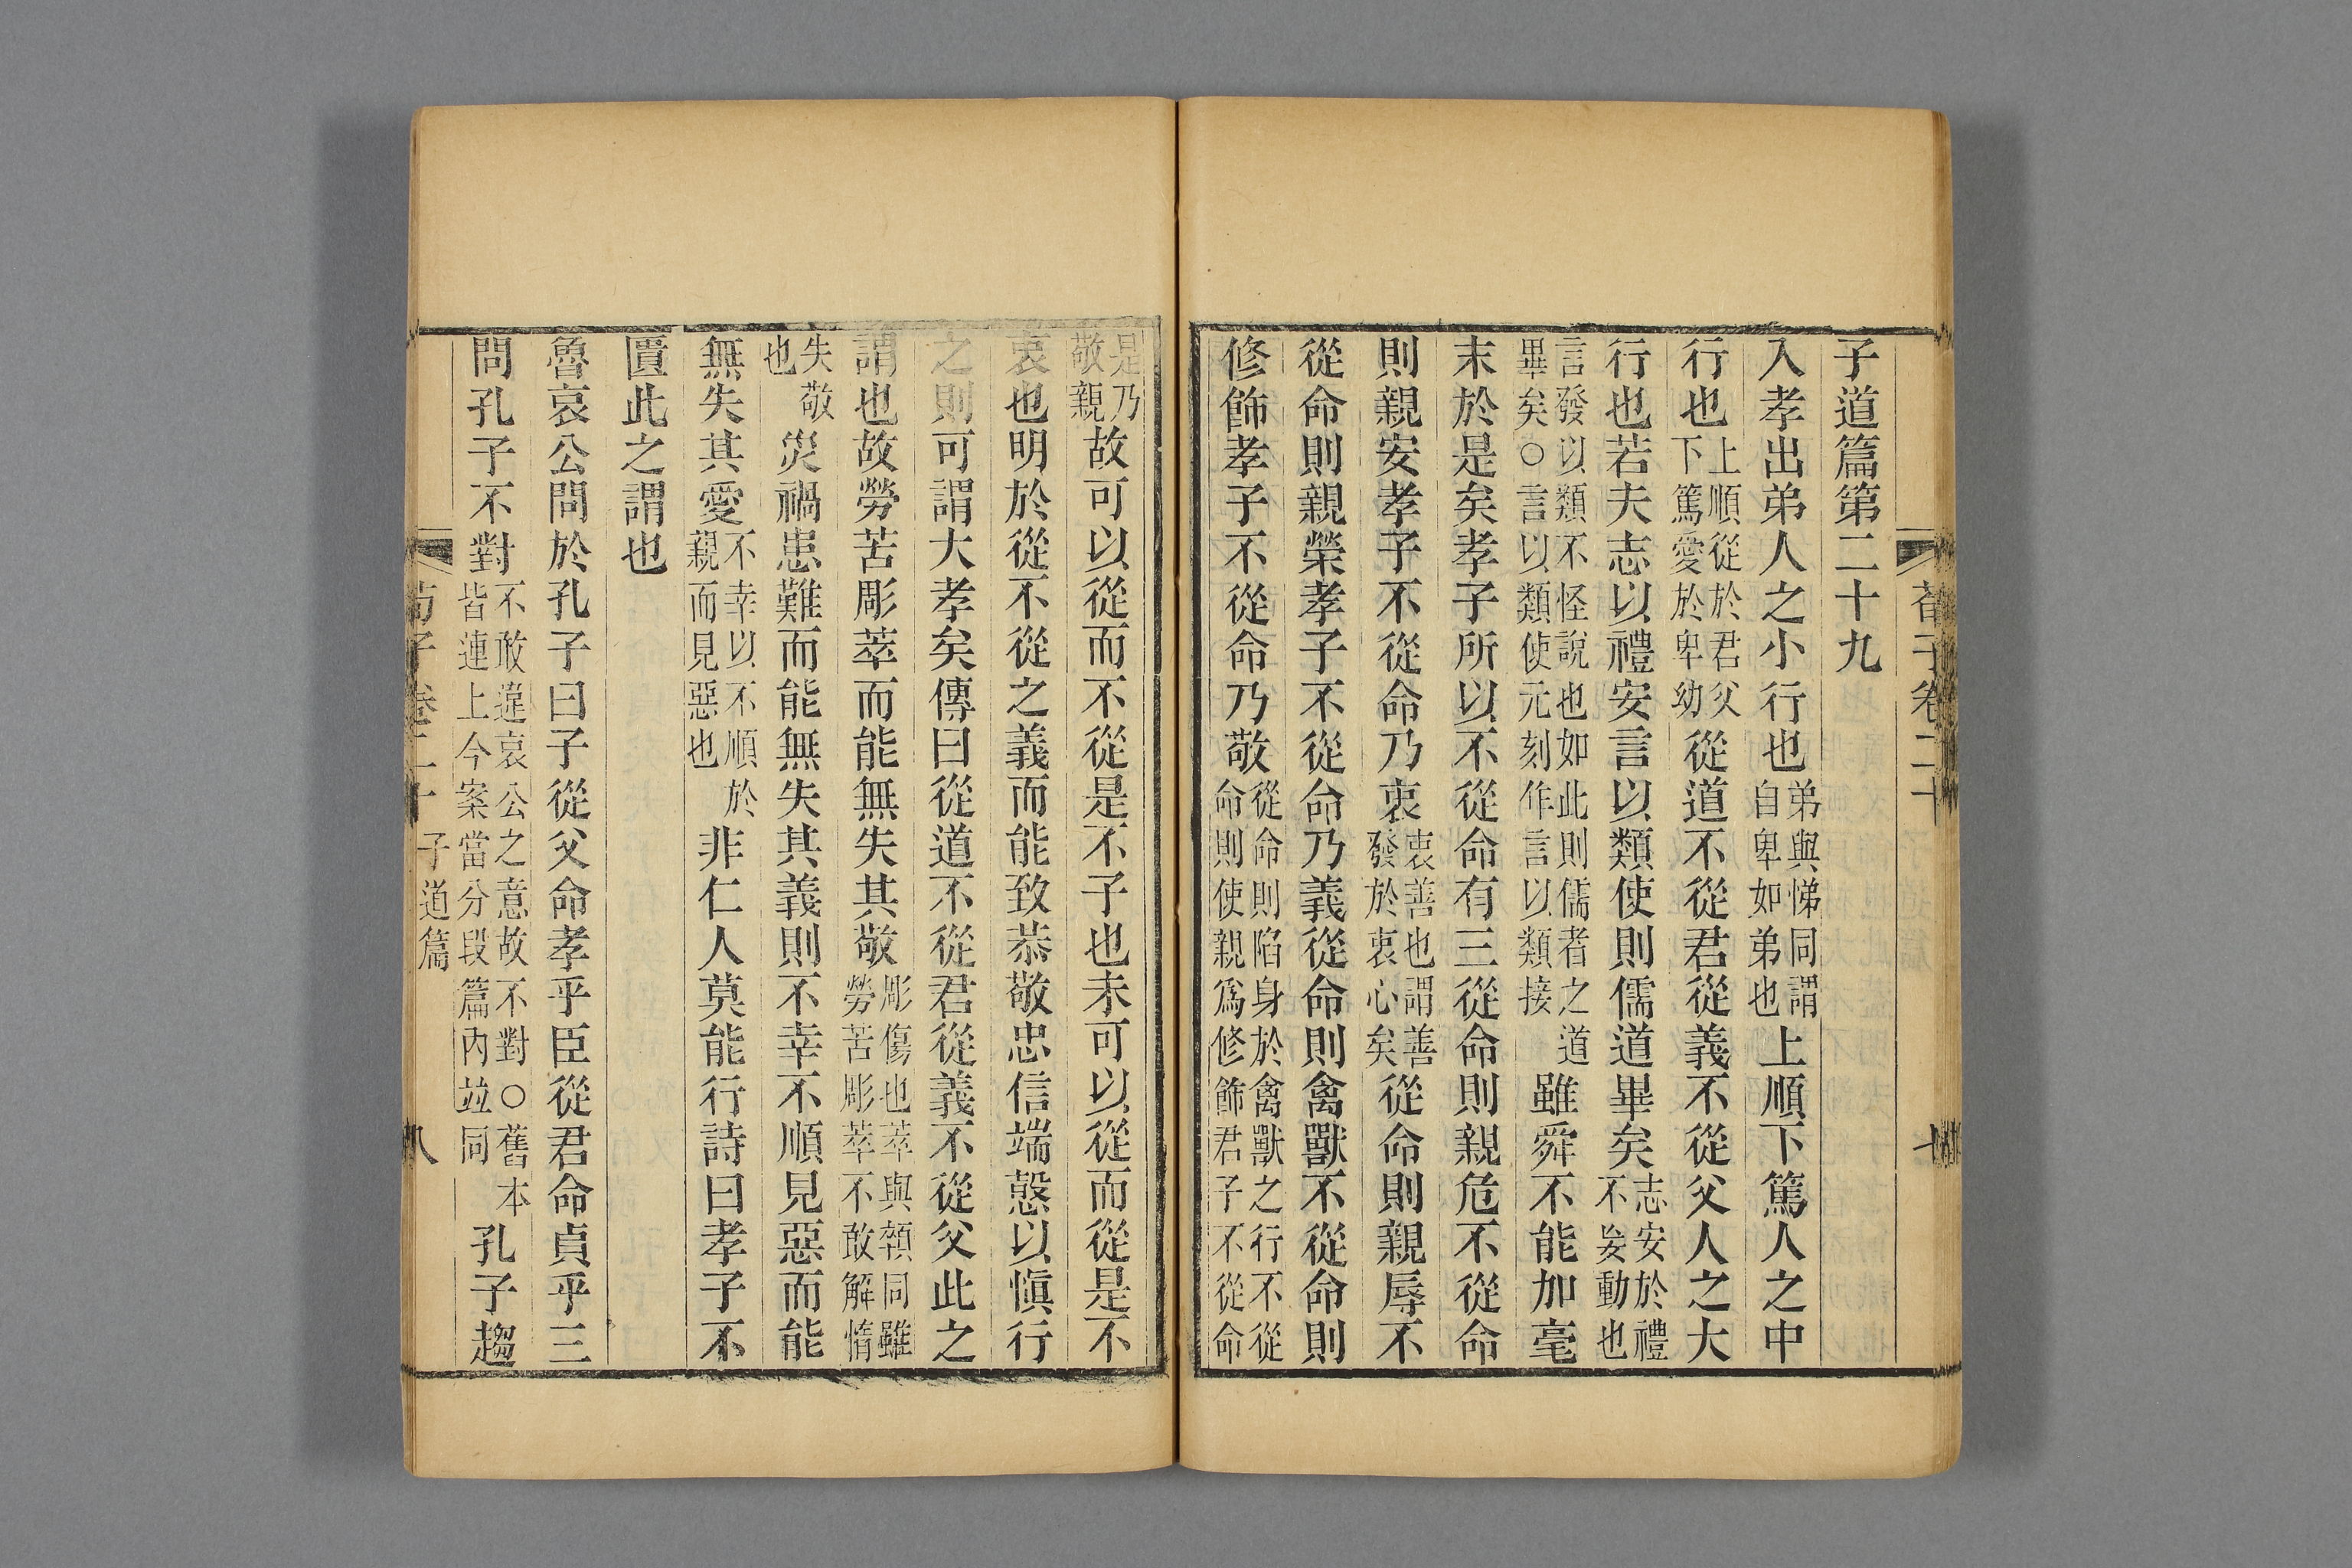 荀子卷二十
七
子道篇第二十九
入孝出弟人之小行也弟與悌同謂自卑如弟也上順下篤人之中
行也上順從於君父下篤愛於卑幼從道不從君從義不從父人之大
行也若夫志以禮安言以類使則儒道畢矣志安於禮不妄動也
言發以類不怪說也如此則儒者之道畢矣○言以類使元刻作言以類接雖舜不能加毫
末於是矣孝子所以不從命有三從命則親危不從命
則親安孝子不從命乃衷衷善也謂善發於衷心矣從命則親辱不
從命則親榮孝子不從命乃義從命則禽獸不從命則
修飾孝子不從命乃敬從命則陷身於禽獸之行不從命則使親爲修飾君子不從命
是乃敬親故可以從而不從是不子也未可以從而從是不
衷也明於從不從之義而能致恭敬忠信端慤以愼行
之則可謂大孝矣傳曰從道不從君從義不從父此之
謂也故勞苦彫萃而能無失其敬彫傷也萃與顇同雖勞苦彫萃不敢解惰
失敬也災禍患難而能無失其義則不幸不順見惡而能
無失其愛不幸以不順於親而見惡也非仁人莫能行詩曰孝子不
匱此之謂也
魯哀公問於孔子曰子從父命孝乎臣從君命貞乎三
問孔子不對不敢違哀公之意故不對○舊本皆連上今案當分段篇內竝同孔子趨
荀子卷二十
子道篇
八